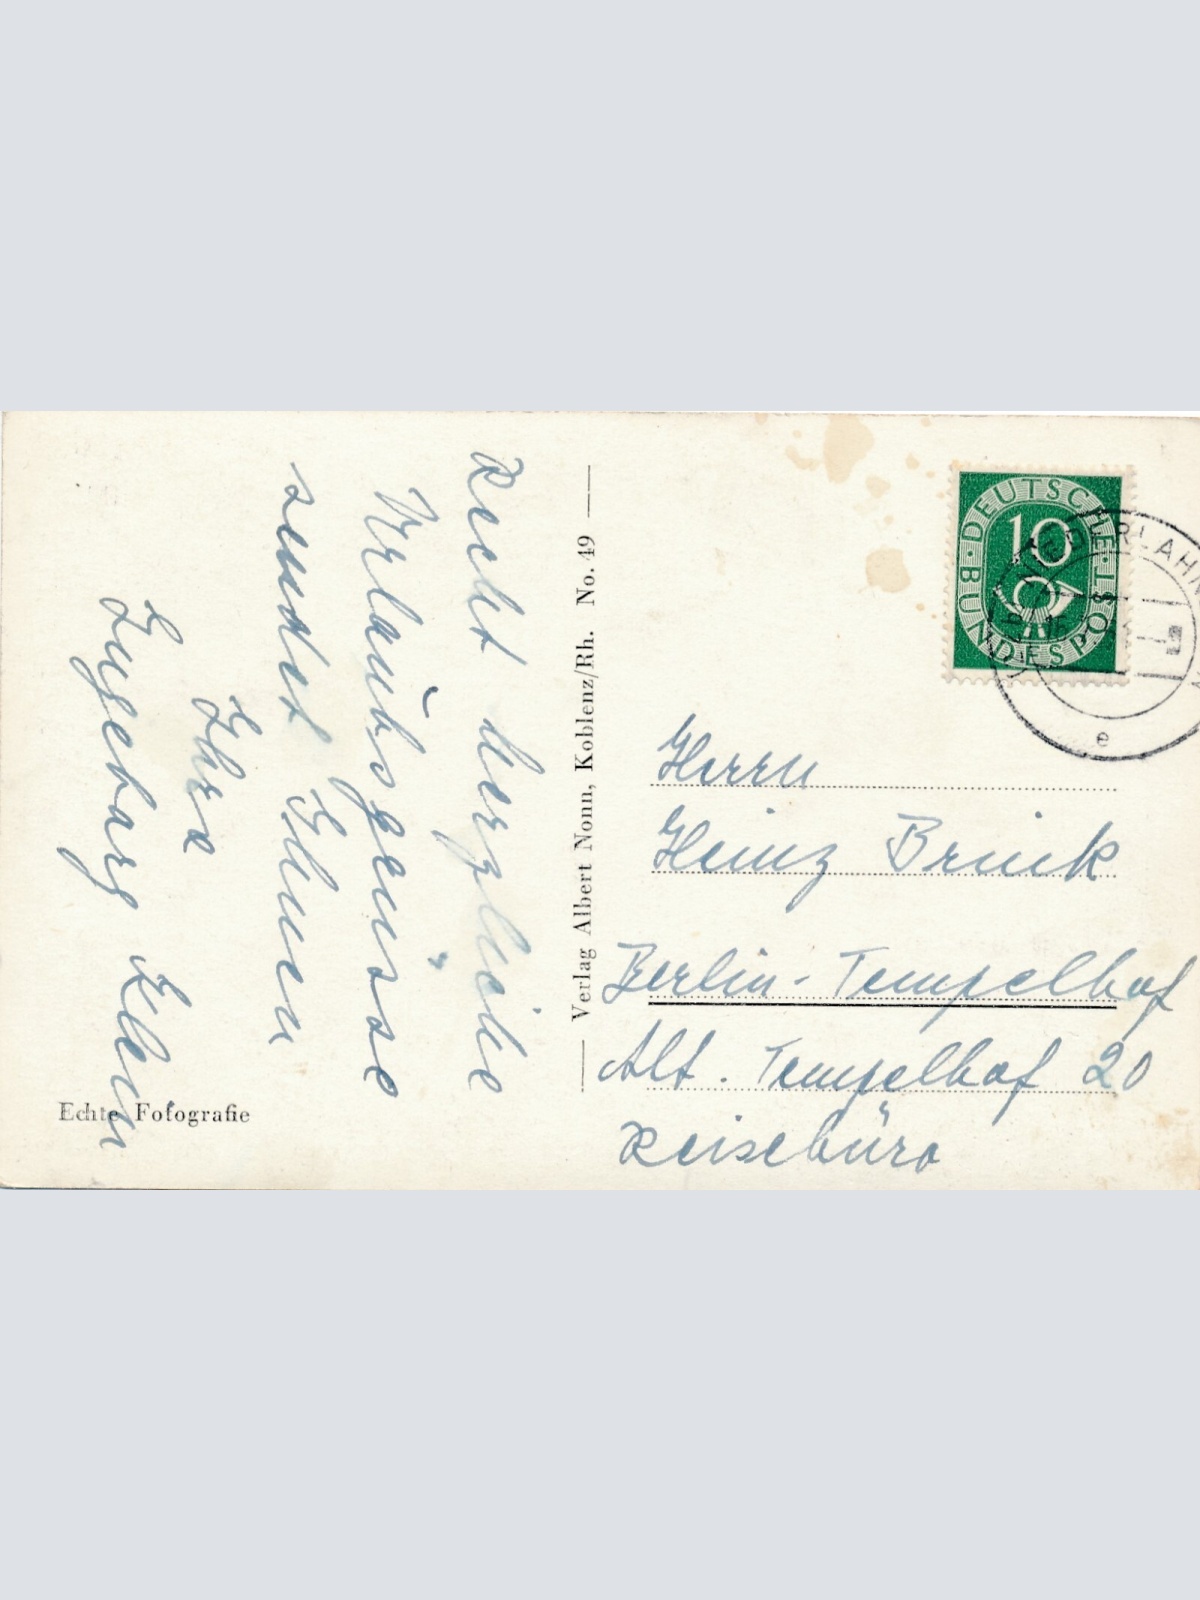 Recht herzliche
Urlaubsgrüsse
sendet Ihnen
Ihre
Ingeborg
Echte Fotografie
Verlag Albert Nonn, Koblenz/Rh. No. 49
DEUTSCHE BUNDESPOST
10
e
Herrn
Heinz
Berlin-Tempelhof
Alt. Tempelhof 20
Reisebüro